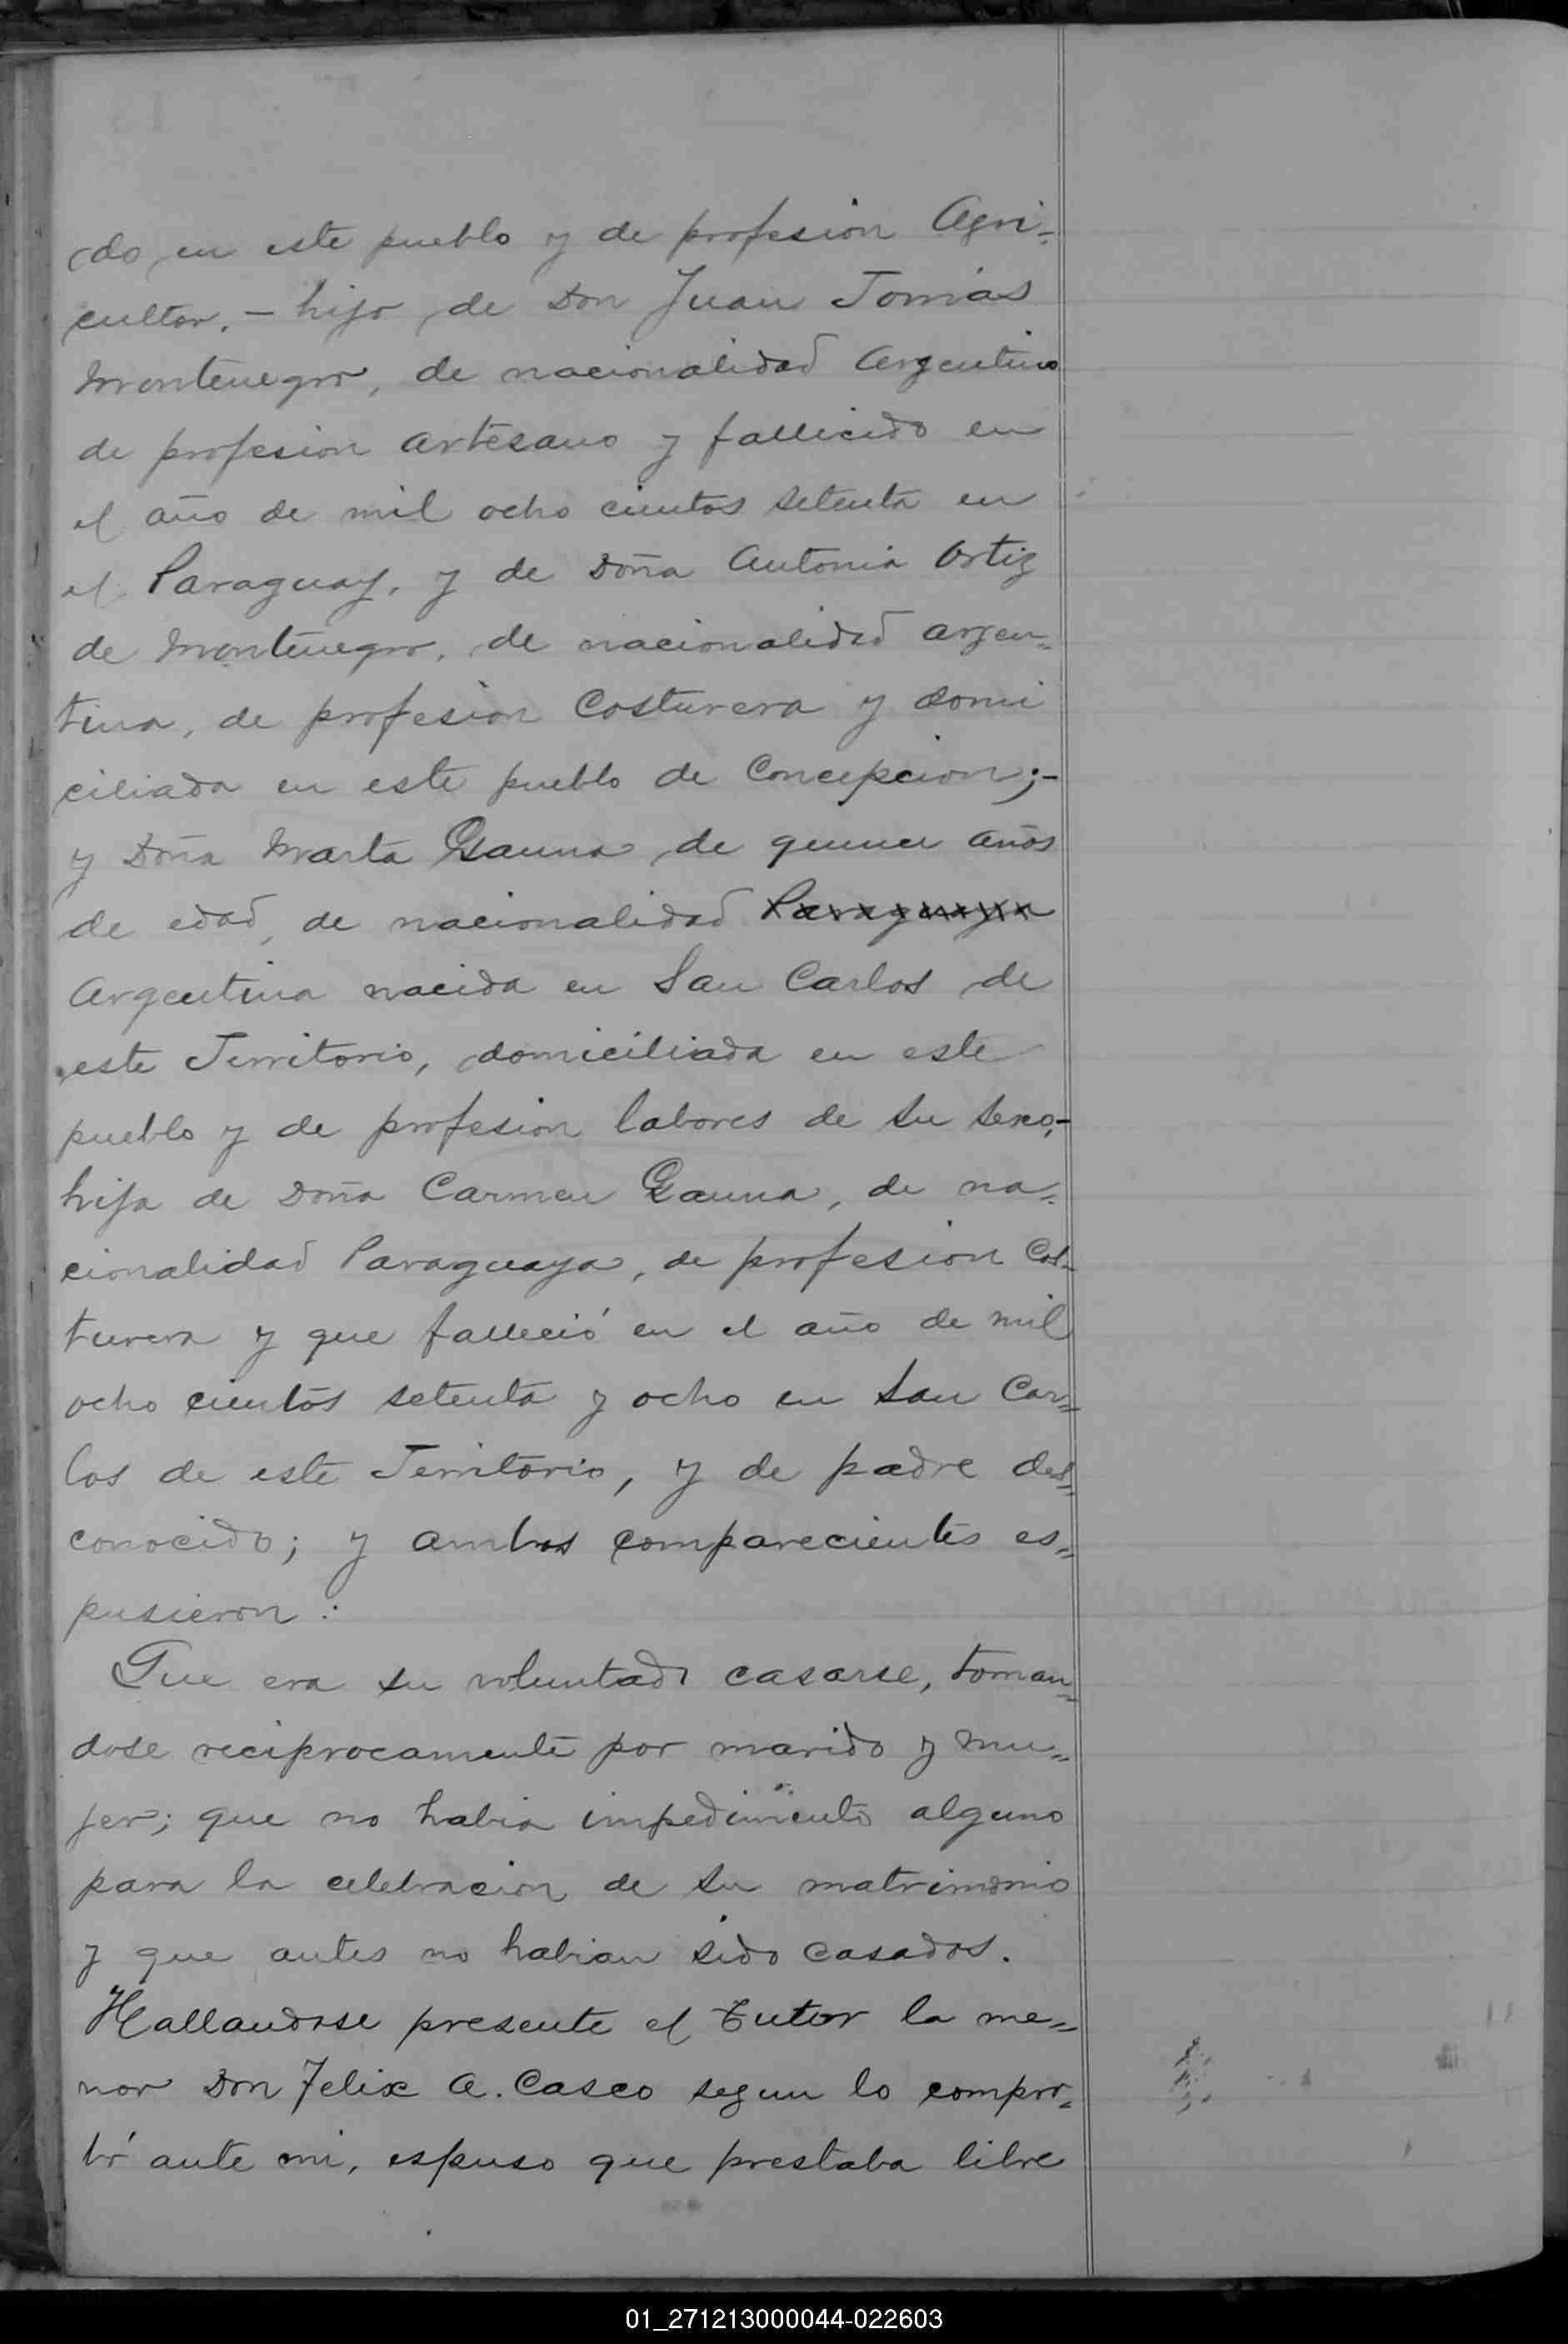 do en este pueblo y de profesion Agri-
cultor. – hijo de Don Juan Tomás
Montenegro, de nacionalidad Argentino
de profesion artesano y fallecido en
el año de mil ocho cientos setenta en
el Paraguay, y de Doña Antonia Ortiz
de Montenegro, de nacionalidad argen-
tina, de profesion Costurera y domi
ciliada en este pueblo de Concepcion;-
y Doña Marta Gauna de quince años
de edad, de nacionalidad Paraguaya
Argentina nacida en San Carlos de
este Territorio, domiciliada en este
pueblo y de profesion labores de su sexo,-
hija de Doña Carmen Gauna, de na-
cionalidad Paraguaya, de profesion Cos-
turera y que falleció en el año de mil
ocho cientos setenta y ocho en San Car-
los de este Territorio, y de padre des-
conocido; y ambos comparecientes es-
pusieron:
Que era su voluntad casarse, toman-
dose reciprocamente por marido y mu-
jer; que no habia impedimento alguno
para la celebracion de su matrimonio
y que antes no habian sido casados.
Hallandose presente el tutor la me-
nor Don Felix A. Casco segun lo compro-
bó ante mi, espuso que prestaba libre
01_271213000044-022603